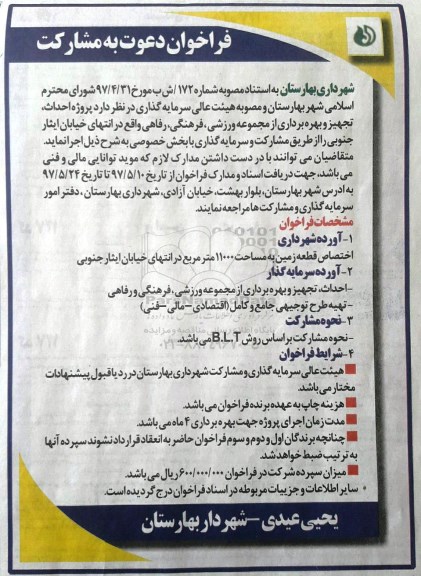 فراخوان دعوت به مشارکت
شهرداری بهارستان به استناد مصوبه شماره ۱۷۲/ش ب مورخ ۹۷/۴/۳۱ شورای محترم
اسلامی شهر بهارستان و مصوبه هیئت عالی سرمایه گذاری در نظر دارد پروژه احداث،
تجهیز و بهره برداری از مجموعه ورزشی، فرهنگی، رفاهی واقع در انتهای خیابان ایثار
جنوبی را از طریق مشارکت و سرمایه گذاری با بخش خصوصی به شرح ذیل اجرا نماید.
متقاضیان می توانند با در دست داشتن مدارک لازم که موید توانایی مالی و فنی
می باشد، جهت دریافت اسناد و مدارک فراخوان از تاریخ ۹۷/۵/۱۰ تا تاریخ ۹۷/۵/۲۴
به آدرس شهر بهارستان، بلوار بهشت، خیابان آزادی، شهرداری بهارستان، دفتر امور
سرمایه گذاری و مشارکت ها مراجعه نمایند.
مشخصات فراخوان
۱- آورده شهرداری
اختصاص قطعه زمین به مساحت ۱۱۰۰۰ متر مربع در انتهای خیابان ایثار جنوبی
۲- آورده سرمایه گذار
- احداث، تجهیز و بهره برداری از مجموعه ورزشی، فرهنگی و رفاهی
- تهیه طرح توجیهی جامع و کامل (اقتصادی – مالی – فنی)
۳- نحوه مشارکت
- نحوه مشارکت بر اساس روش B.L.T می باشد.
۴- شرایط فراخوان
هیئت عالی سرمایه گذاری و مشارکت شهرداری بهارستان در رد یا قبول پیشنهادات
مختار می باشد.
هزینه چاپ به عهده برنده فراخوان می باشد.
مدت زمان اجرای پروژه جهت بهره برداری ۴ ماه می باشد.
چنانچه برندگان اول و دوم و سوم فراخوان حاضر به انعقاد قرارداد نشوند سپرده آنها
به ترتیب ضبط خواهد شد.
میزان سپرده شرکت در فراخوان ۶۰۰/۰۰۰/۰۰۰ ریال می باشد.
* سایر اطلاعات و جزییات مربوطه در اسناد فراخوان درج گردیده است.
یحیی عیدی – شهردار بهارستان